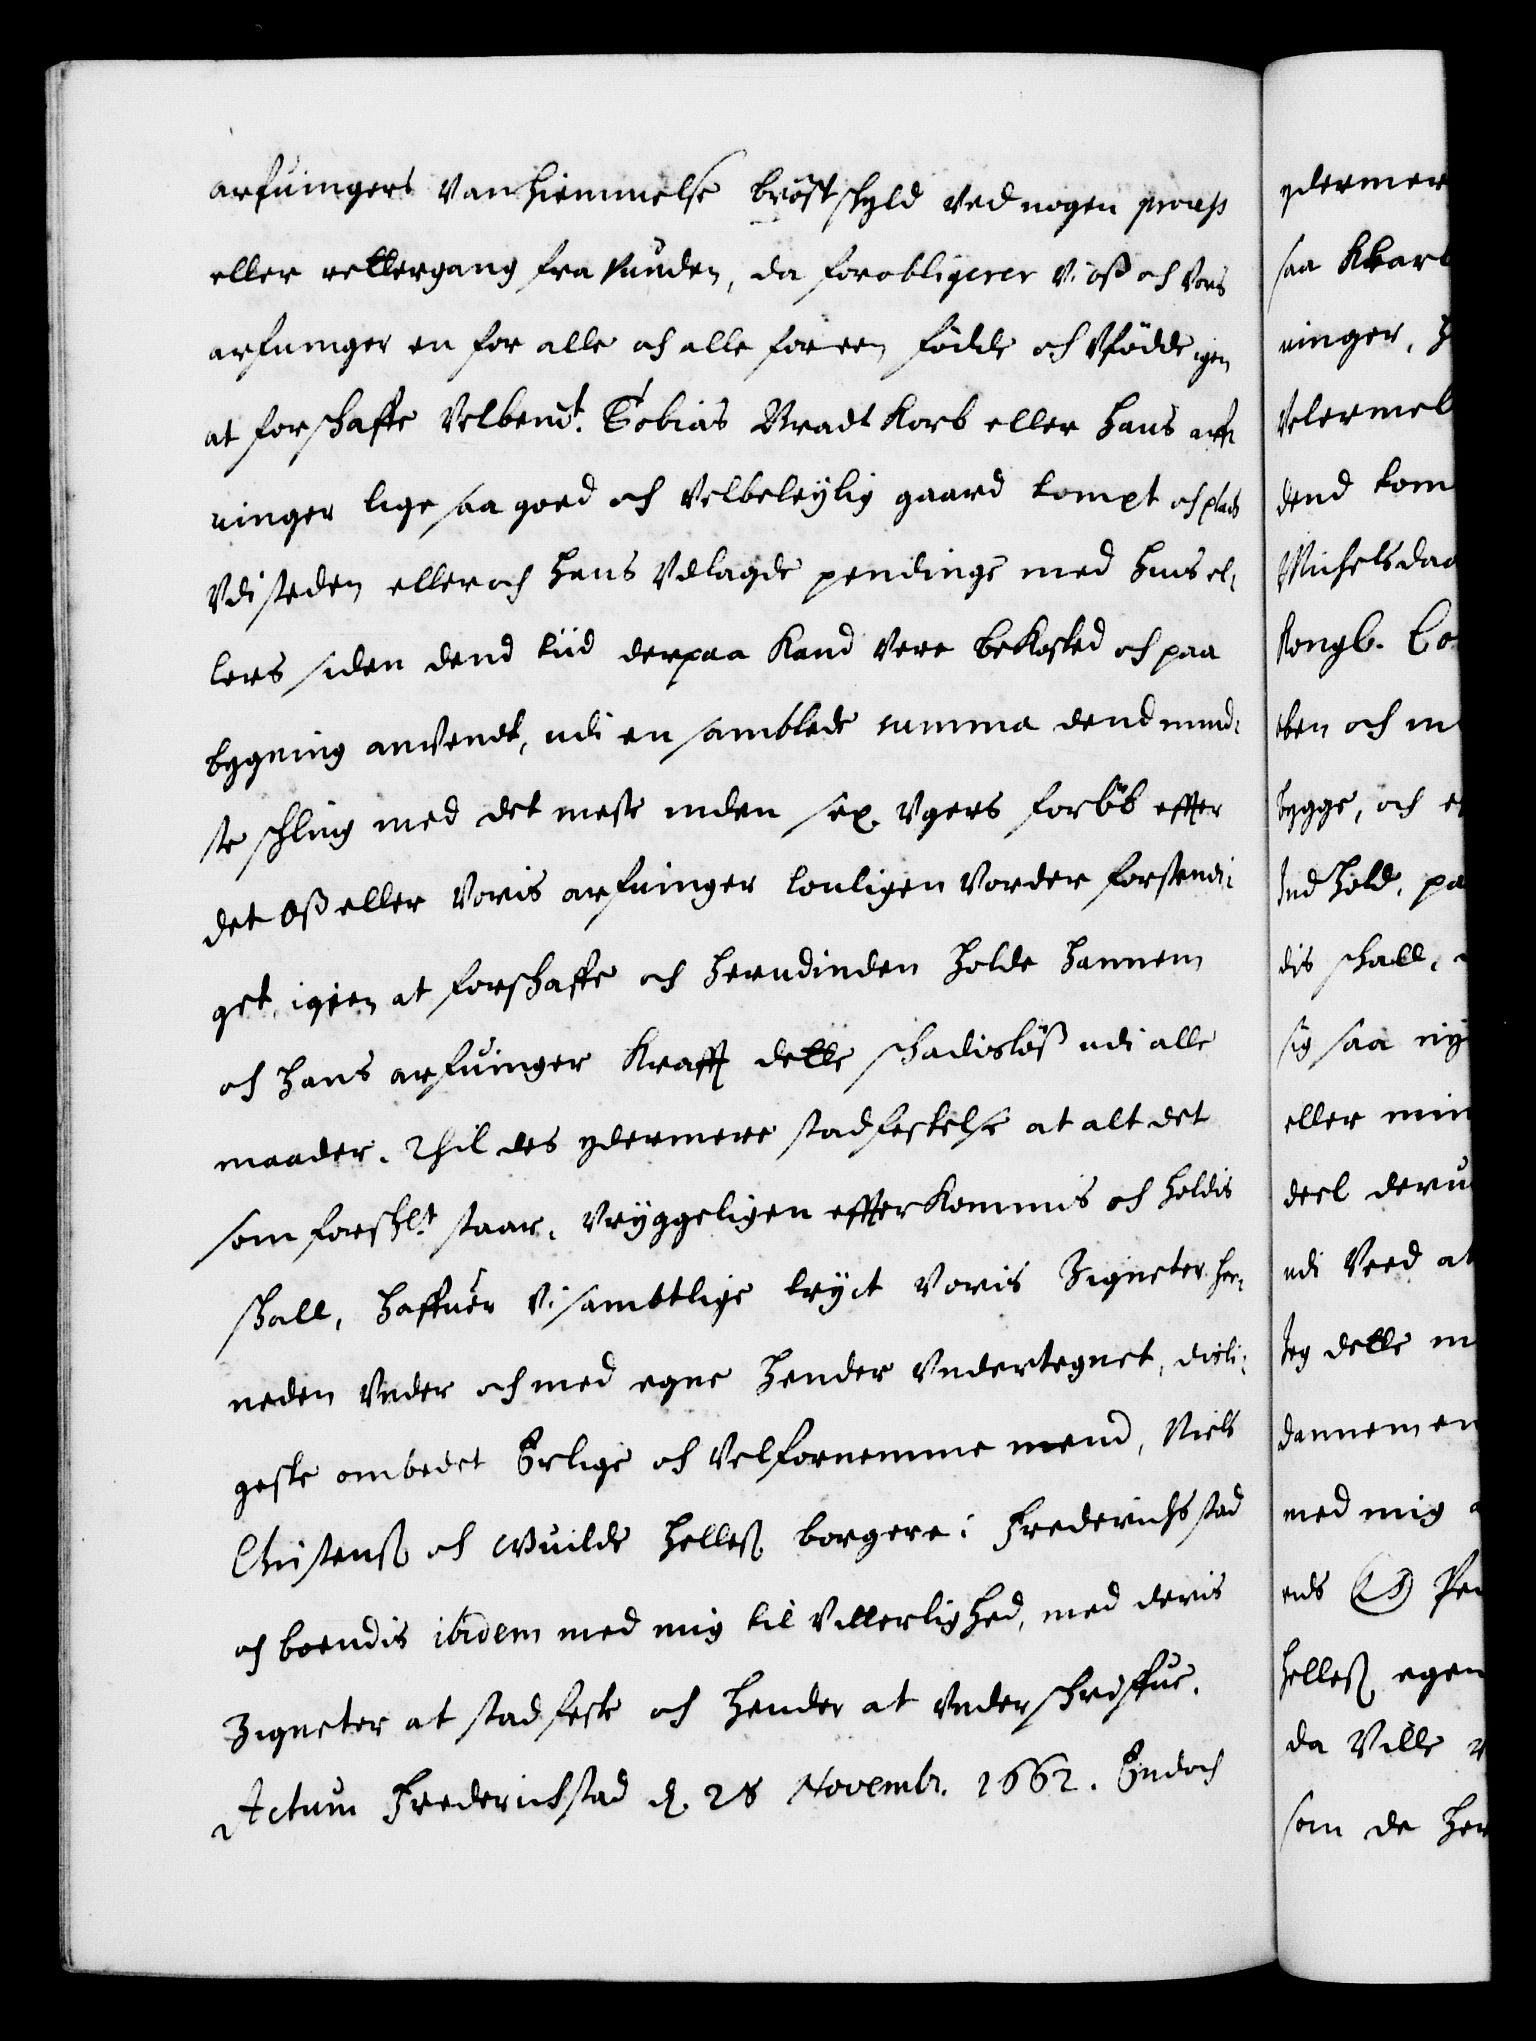 arfuingers Vanhiemmelse bröstskyld ved nogen process
eller rettergang fra Vunden, da forobligerer Vi oß och Vore
arfuinger en for alle och alle for een födde och Vfödde igen
at forschaffe Velbemt. Tobias Bradt Korb eller hans arf:
uinger lige saa goed och Velbeleylig gaard tompt och plads
Vdi steden eller och hans Vdlagde pendinge med huis el,
lers siden dend tiid derpaa Kand Vere beKosted och paa
bygning anVendt, udi en samblede summa dend mind:
ste schling med det meste inden sex Vgers forlöb effter
det Oß eller Voris arfuinger louligen Vorder forstendi:
get, igien at forschaffe och herudinden holde hannem
och hans arfuinger Krafft dette schadislöß udi alle
maader. Thil des ydermere stadfestelse at alt det
som forschl.t staar, Vryggeligen effterKommis och holdis
schall, haffuer Vi sambtlige tryct Voris Zigneter her,
neden Vnder och med egne hender Vndertegnet, disli:
geste ombedet Erlige och Velfornemme mend, Niels
Christenß och Euilde Helleß borgere i Frederichsstad
och boendis ibidem med mig til Vitterlighed, med deris
Zigneter at stadfeste och hender at Vnderschriffue.
Actum Frederichstad d. 28 Novembr. 1662. Endoch
ydermer
saa Kkarl
uinger, H
Velermel
dend tom
Michelsdag
Kongl. Co
ten och m
bygge, och e
Indhold, pa
dis schall,
sig saa ny
eller min
deel deru
udi Veed at
Jeg dette m
dannemen
med mig
eds (LS) Pe
Helleß egen
da Ville
som de her